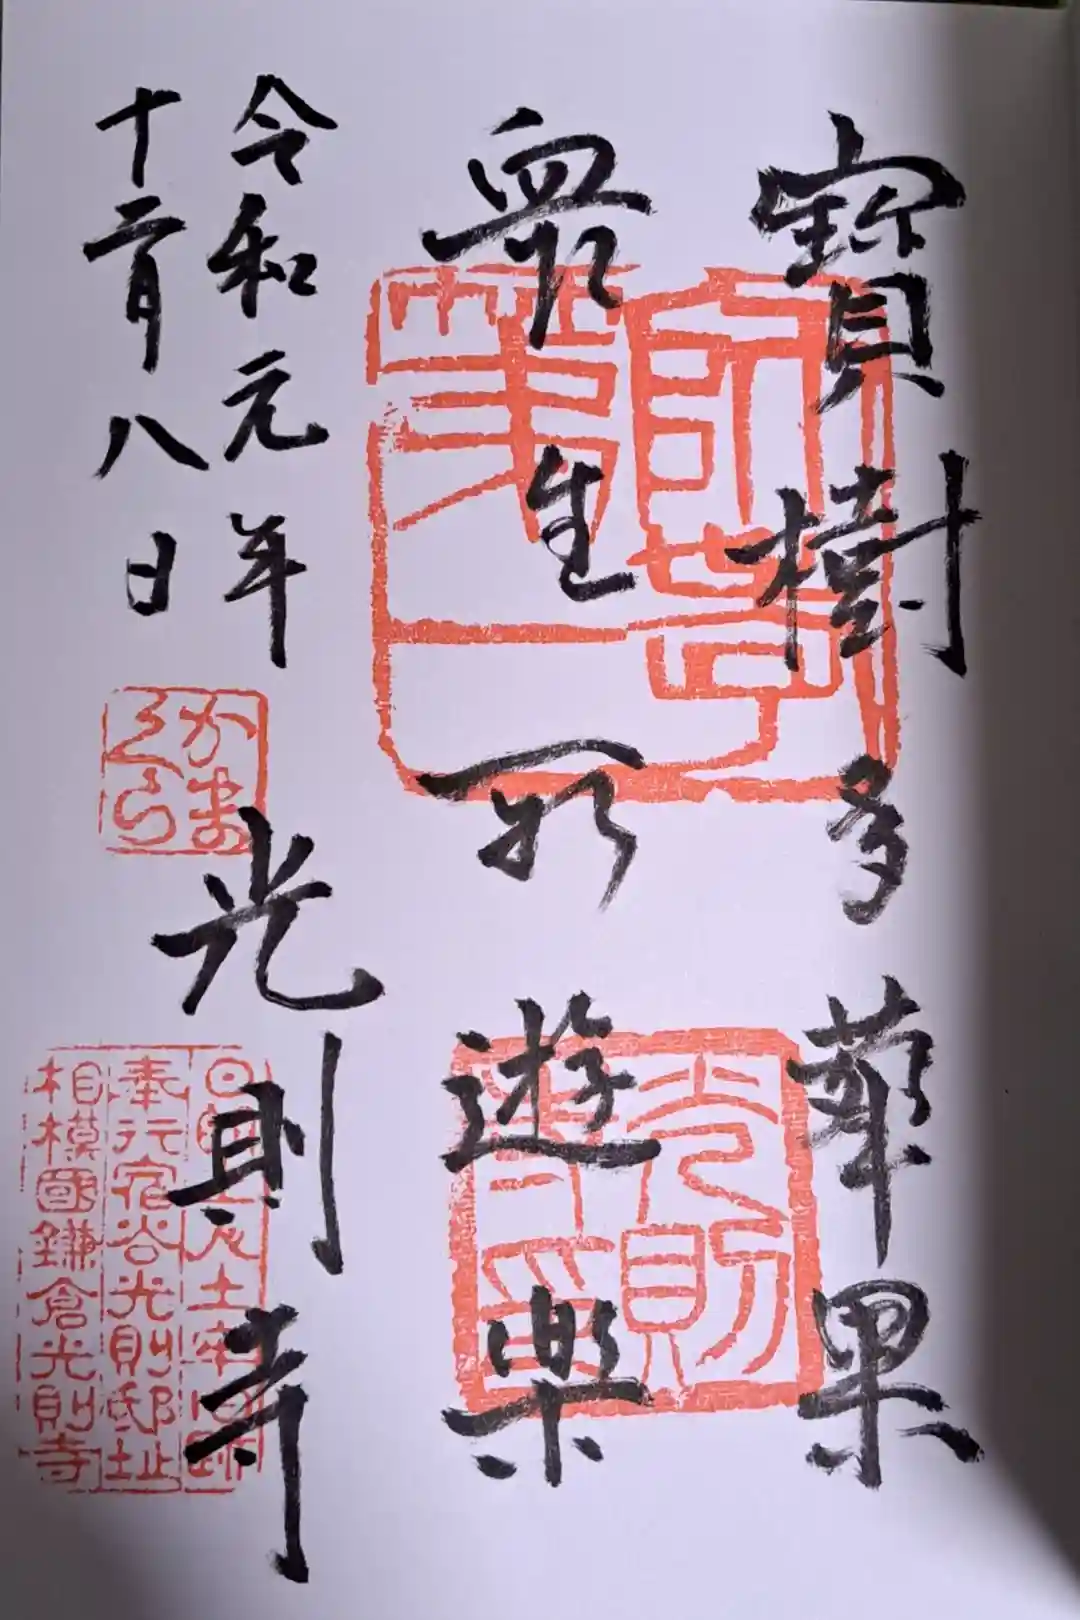 寶樹多華果
衆生所遊樂
令和元年
十二月八日
光則寺
師孝第一
光則寺印
かまくら
日朗上人土牢旧跡
奉行宿谷光則邸址
相模國鎌倉光則寺